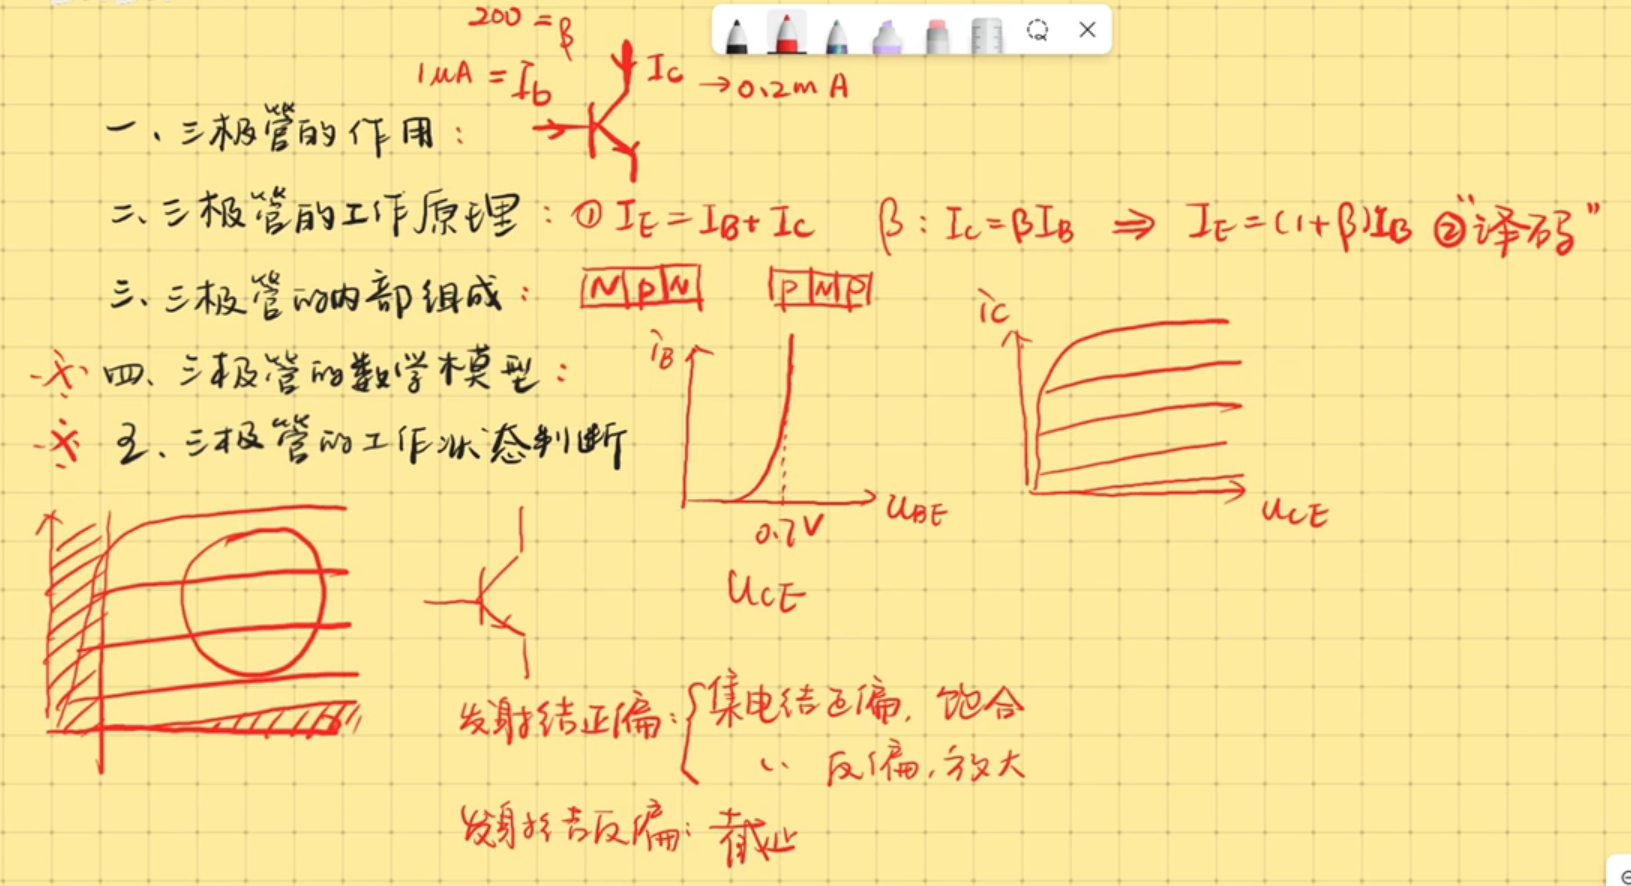 200 = β
1μA = Ib
Ic → 0.2mA
一、三极管的作用：
二、三极管的工作原理：① IE = IB + IC β：Ic = βIB ⇒ IE = (1+β)IB ②“译码”
三、三极管的内部组成：N P N P N P
iB
iC
四、三极管的数学模型：
五、三极管的工作状态判断
UBE
0.7V
UCE
UCE
发射结正偏：集电结正偏，饱合
〃 反偏，放大
发射结反偏：截止